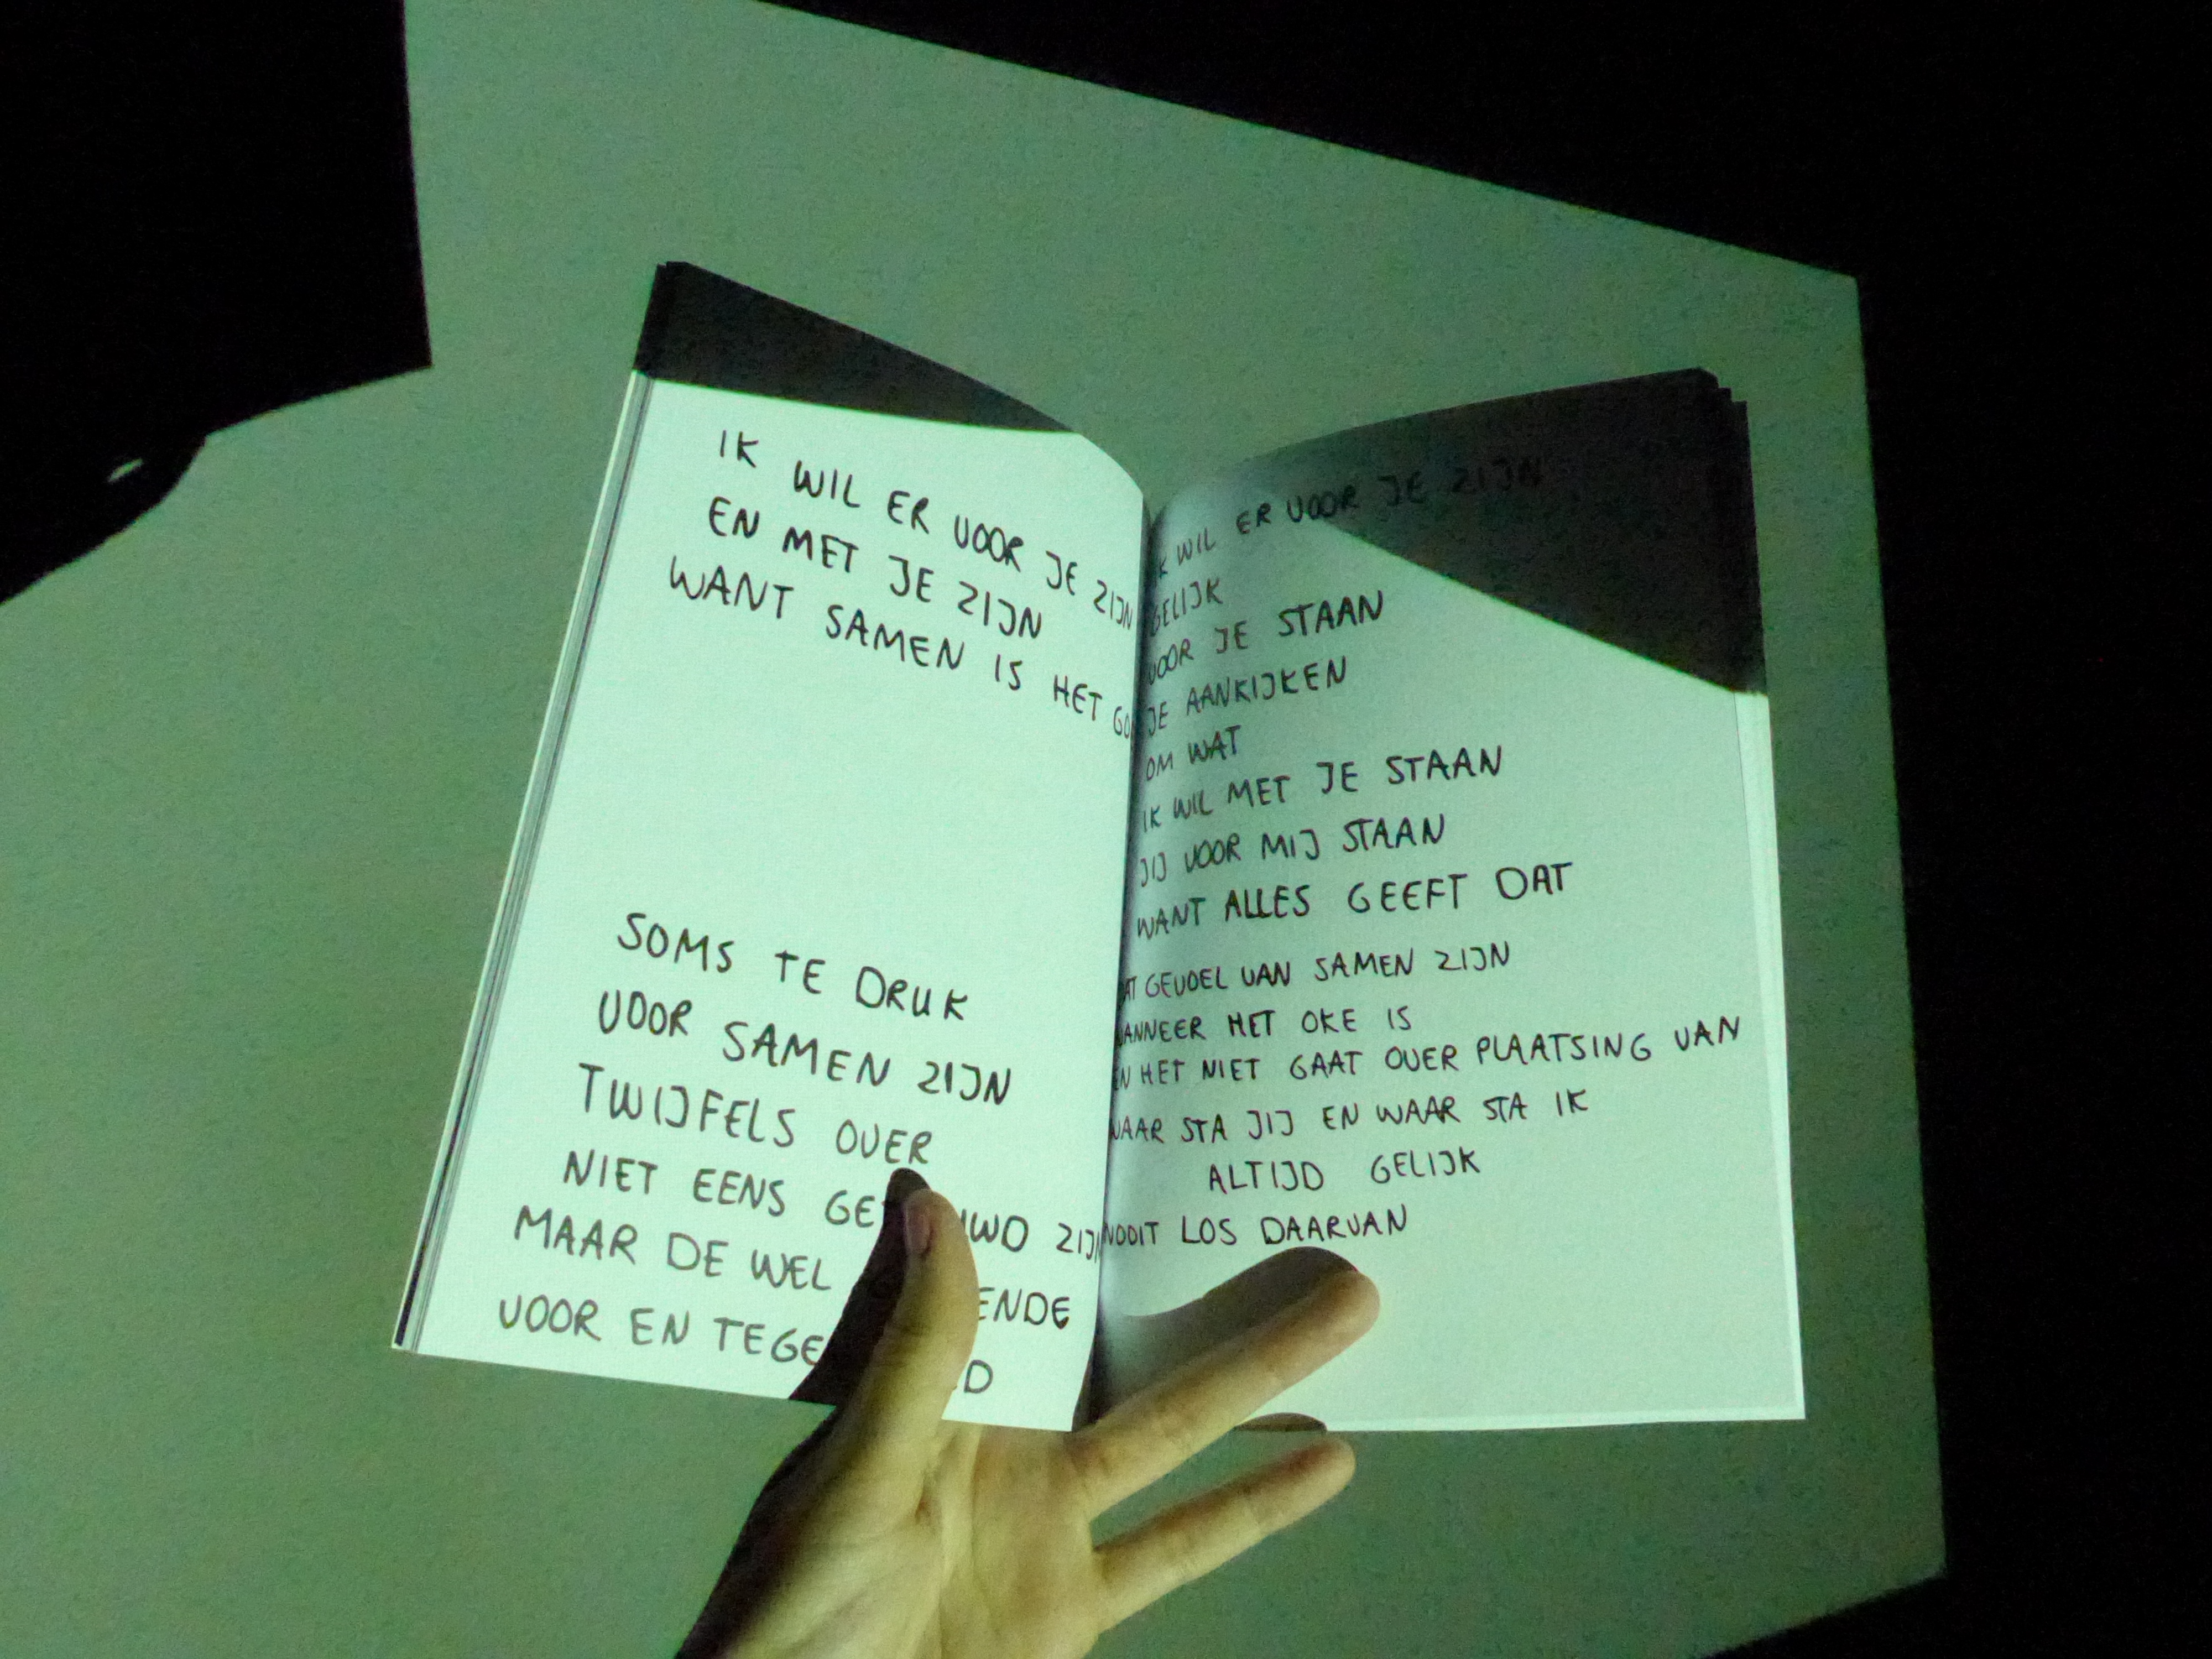 IK WIL ER VOOR JE ZIJN
EN MET JE ZIJN
WANT SAMEN IS HET
SOMS TE DRUK
VOOR SAMEN ZIJN
TWIJFELS OVER
NIET EENS ZIJN
MAAR DE WEL
VOOR EN
IK WIL ER VOOR JE ZIJN
GELIJK
VOOR JE STAAN
JE AANKIJKEN
OM WAT
IK WIL MET JE STAAN
JIJ VOOR MIJ STAAN
WANT ALLES GEEFT DAT
DAT GEVOEL VAN SAMEN ZIJN
WANNEER HET OKE IS
EN HET NIET GAAT OVER PLAATSING VAN
WAAR STA JIJ EN WAAR STA IK
ALTIJD GELIJK
NOOIT LOS DAARVAN